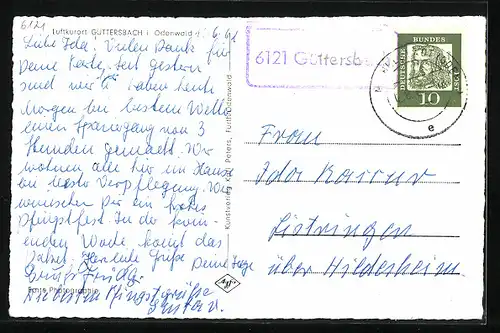 6121
Luftkurort GÜTTERSBACH i. Odenwald
6121 Güttersbach
DEUTSCHE BUNDESPOST
10
e
Liebe Ida! Vielen Dank für
Deine Karte. Seit gestern
sind wir u. haben heute
Morgen bei bestem Wetter
einen Spaziergang von 3
Stunden gemacht. Wir
wohnen alle hier im Hause
bei bester Verpflegung. Wir
wünschen Dir ein frohes
Pfingstfest. In der kom-
menden Woche kommt das
Herzliche Grüße Deine
Liebe Pfingstgrüße
Gustav.
Echte Photographie
Kunstverlag Karl Peters, Fürth/Odenwald
Agfa
Frau
Ida
Listringen
über Hildesheim